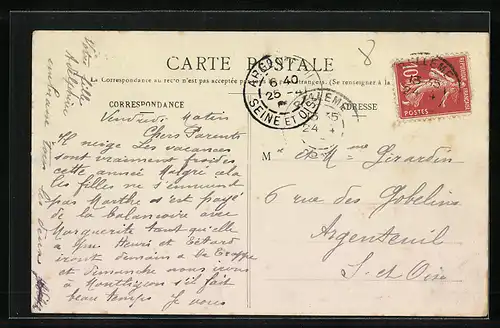 CARTE POSTALE
La Correspondance au recto n'est pas acceptée par tous les pays étrangers. (Se renseigner à la
CORRESPONDANCE
ADRESSE
Vendredi Matin
Chers Parents
Il neige Les vacances
sont vraiment froides
cette année Malgré cela
les filles ne s'ennuient
pas Marthe s'est payé
de la balançoire avec
Marguerite tant qu'elle
a pu Henri et
iront demain a la Trappe
et dimanche nous irons
à Montligeon s'il fait
beau temps Je vous
embrasse tous les deux
Votre fille
M et Mme Girardin
6 rue des Gobelins
Argenteuil
S. et Oise
8
6 40
25 -4
SEINE ET OISE
24 4
10
POSTES
REPUBLIQUE FRANÇAISE